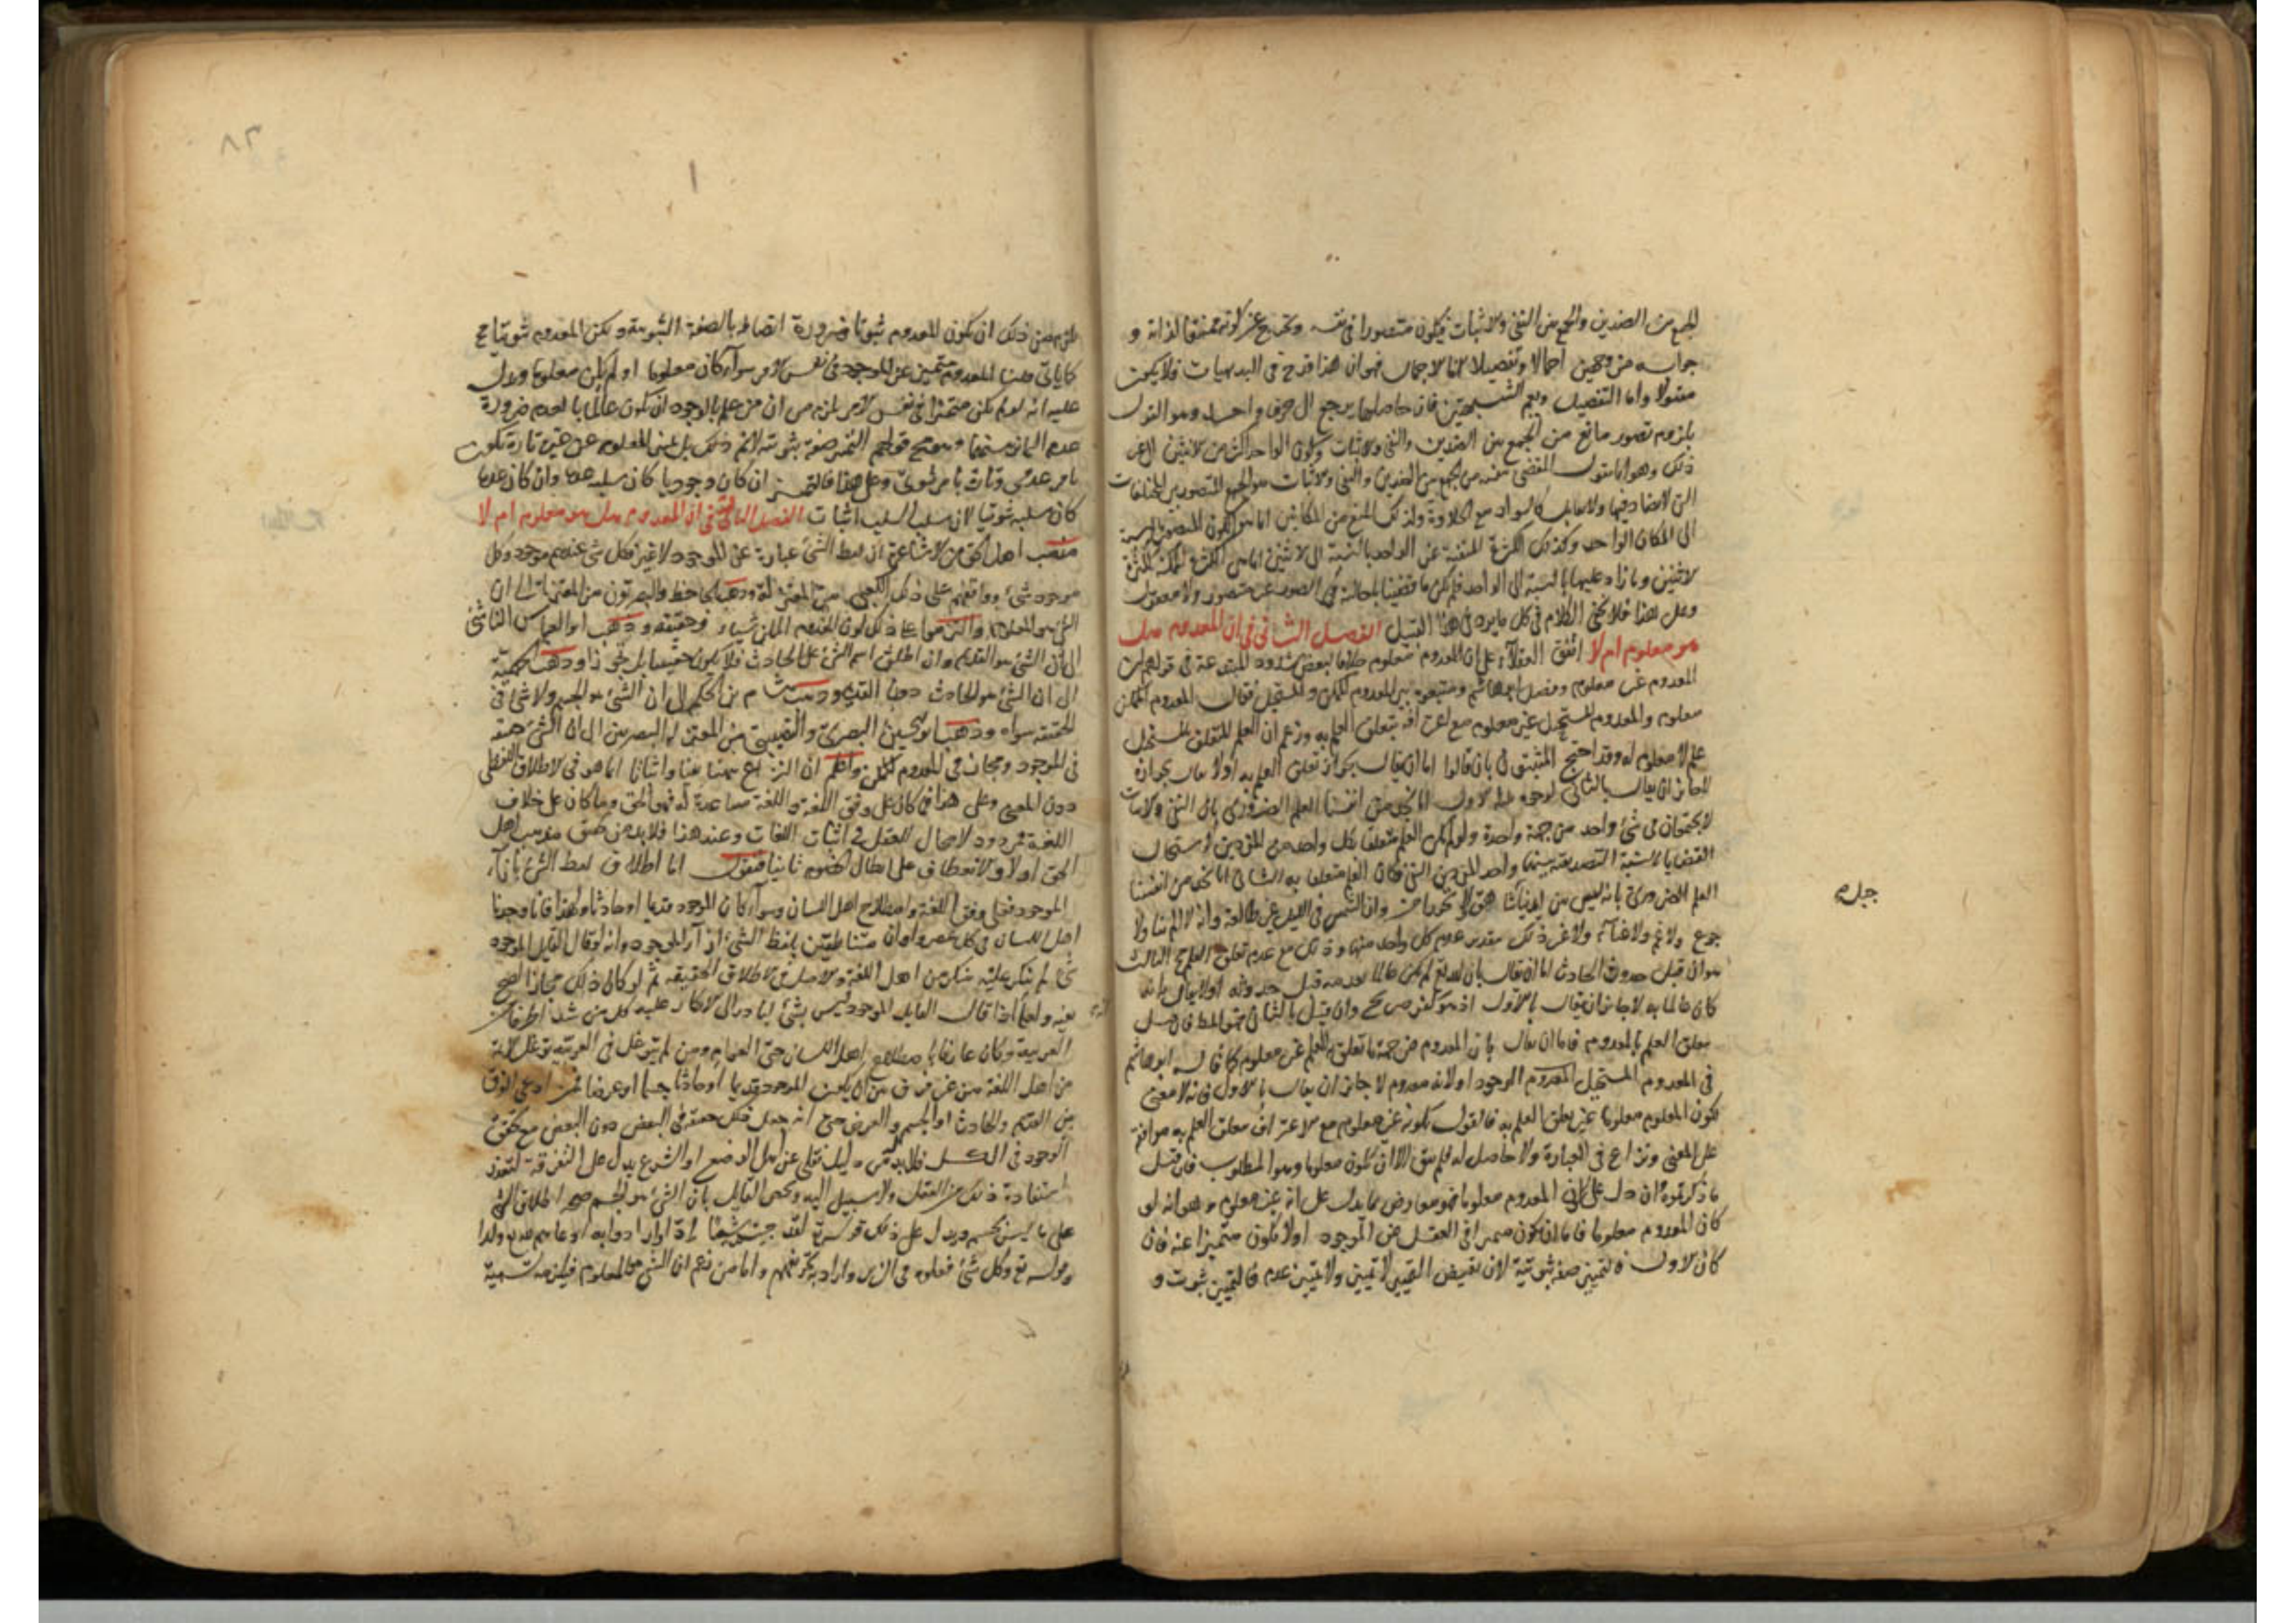 الجمع بين الضدين والجمع بين النفي والاثبات فيكون متصورا في نفسه ويخرج عن كونه ممتنعا لذاته و
جوابه من وجهين اجمالا وتفصيلا اما الاجمال فهو ان هذا قدح في البديهيات فلا يكون
مقبولا واما التفصيل الشبهتين فان حاصلها يرجع الى حرف واحد وهو القول
بلزوم تصور مانع من الجمع بين الضدين والنفي والاثبات وكون الواحد اكثر من الاثنين الى غير
ذلك وهو انا نقول المقضي بنفيه من الجمع بين الضدين والنفي والاثبات هو الجمع المتصور بين المختلفات
التي لا تضاد فيها ولا تقابل كالسواد مع الحلاوة وكذلك
الى المكان الواحد وكذلك الكثرة المنفية عن الواحد بالنسبة الى الاثنين انما هي الكثرة
الاثنين وما زاد عليها بالنسبة الى الواحد فلم يكن ما قضينا باحالته في الصور غير متصور ولا معقول
وعلى هذا فلا يخفى الكلام في كل ما يرد في هذا القبيل الفصل الثاني في ان المعدوم هل
هو معلوم ام لا اتفق العقلاء على ان المعدوم معلوم خلافا لبعض شذوذ المبتدعة في قولهم ان
المعدوم غير معلوم وفصل ابو هاشم ومتبعوه بين المعدوم الممكن والمستحيل فقال المعدوم الممكن
معلوم والمعدوم المستحيل غير معلوم مع اعترافه بتعلق العلم به وزعم ان العلم المتعلق بالمستحيل
علم لا معلوم له وقد احتج المثبتون بان قالوا اما ان يقال بجواز تعلق العلم به او لا يقال بجوازه
لا جائز ان يقال بالثاني لوجوه الاول انا نجد من انفسنا العلم الضروري بان النفي والاثبات
لا يجتمعان في شئ واحد من جهة واحدة ولو لم يكن العلم متعلقا بكل واحد من المفردين لاستحال
القضايا بالنسبة التصديقية بينهما واحد المفردين النفي فكان العلم متعلقا به الثاني انا نجد من انفسنا
العلم الضروري بانه ليس بين ايدينا وان الشمس في الليل غير طالعة وانه لا الم بنا ولا
جوع ولا غم ولا غير ذلك بتقدير عدم كل واحد منها وذلك مع عدم تعلق العلم الثالث
هو ان قبل حدوث الحادث اما ان يقال بان الله تع لم يكن عالما بعدمه قبل حدوثه او لا يقال بل انه
كان عالما به لا جائز ان يقال بالاول اذ هو كفر صريح وان قيل بالثاني فهو المطلوب فان قيل
بتعلق العلم بالمعدوم فاما ان يقال بان المعدوم من جهة ما تعلق به العلم غير معلوم كما قاله ابو هاشم
في المعدوم المستحيل الوجود او لانه معدوم لا جائز ان يقال بالاول فانه لا معنى
لكون المعلوم معلوما غير تعلق العلم به فالقول بكونه غير معلوم مع الاعتراف بتعلق العلم به موافقة
على المعنى ونزاع في العبارة ولا حاصل له فلم يبق الا ان يكون معلوما وهو المطلوب فان قيل
ما ذكرتموه ان دل على كون المعدوم معلوما فهو معارض بما يدل على انه غير معلوم وهو انه لو
كان المعدوم معلوما فاما ان يكون متميزا في العقل عن الموجود او لا يكون متميزا عنه فان
كان الاول فالتميز صفة ثبوتية لان نقيض التميز لا تميز ولا تميز عدم فالتميز ثبوت و
جبلة
٨٢
يلزم من ذلك ان يكون المعدوم ثبوتا ضرورة اتصافه بالصفة الثبوتية وكون المعدوم ثبوتيا مح
كما ياتي قلنا المعدوم متميز عن الموجود في نفس الامر سواء كان معلوما او لم يكن معلوما ويدل
عليه انه لو لم يكن متميزا في نفس الامر يلزم من ان من علم بالوجود ان يكون عالما بالعدم ضرورة
عدم التمايز بينهما قولهم التميز صفة ثبوتية لا نم ذلك بل تميز المعلوم عن غيره تارة يكون
بامر عدمي وتارة بامر ثبوتي وعلى هذا فالتميز ان كان وجوديا كان سلبه عدما وان كان عدما
كان سلبه ثبوتيا لان سلب السلب اثبات الفصل الثالث في ان المعدوم هل هو معلوم ام لا
مذهب اهل الحق من الاشاعرة ان لفظ الشئ عبارة عن الموجود لا غير فكل شئ عندهم موجود وكل
موجود شئ ووافقهم على ذلك الكعبي من المعتزلة وذهب الجاحظ والبصريون من المعتزلة الى ان
الشئ هو المعلوم والتزموا على ذلك كون المعدوم الممكن شيئا وحقيقة وذهب ابو العباس الناشي
الى ان الشئ هو القديم وان اطلق اسم الشئ على الحادث فلا يكون حقيقيا بل تجوزا وذهب الجهمية
الى ان الشئ هو الحادث دون القديم وذهب هشام بن الحكم الى ان الشئ هو الجسم ولا شئ في
الحقيقة سواه وذهب ابو الحسين البصري والنصيبي من المعتزلة البصريين الى ان الشئ حقيقة
في الموجود ومجاز في المعدوم الممكن واعلم ان النزاع ههنا نفيا واثباتا انما هو في الاطلاق اللفظي
دون المعنى وعلى هذا فما كان على وفق اللغة واللغة مساعدة له فهو الحق وما كان على خلاف
اللغة فمردود لا مجال للعقل في اثبات اللغات وعند هذا فلا بد من تحقيق مذهب اهل
الحق اولا والانعطاف على ابطال الخصوم ثانيا فنقول اما اطلاق لفظ الشئ بازاء
الموجود فعلى وفق اللغة واصطلاح اهل اللسان وسواء كان الموجود قديما او حادثا ولهذا فانا وجدنا
اهل اللسان في كل عصر واوان متناطقين بلفظ الشئ ازاء الموجود وانه لو قال القائل الموجود
شئ لم ينكر عليه منكر من اهل اللغة والاصل في الاطلاق الحقيقة ثم لو كان ذلك مجازا لصح
نفيه ولهذا اذا قال القائل الموجود ليس بشئ لبادر الى الانكار عليه كل من شدا اطرافا من
العربية وكان عارفا باصطلاح اهل اللسان حتى العوام ومن لم يتوغل في العربية توغل الائمة
من اهل اللغة من غير فرق بين ان يكون الموجود قديما او حادثا جسما او عرضا فمن ادعى الفرق
بين القديم والحادث او الجسم والعرض حتى انه جعل ذلك حقيقة في البعض دون البعض مع تحقق
الوجود في الكل فلا بد له من دليل نقلي عن اهل الوضع او الشرع يدل على التفرقة لتعذر
استفادة ذلك من العقل ولا سبيل اليه ويخص القائل بان الشئ هو الجسم صحة اطلاق الشئ
على ما ليس بجسم ويدل على ذلك قوله تع لقد جئتم شيئا ادا اراد به دعاءهم لله ولدا
وقوله تع وكل شئ فعلوه في الزبر واراد به كفرهم واما من زعم ان الشئ هو المعلوم فيلزمه تسمية